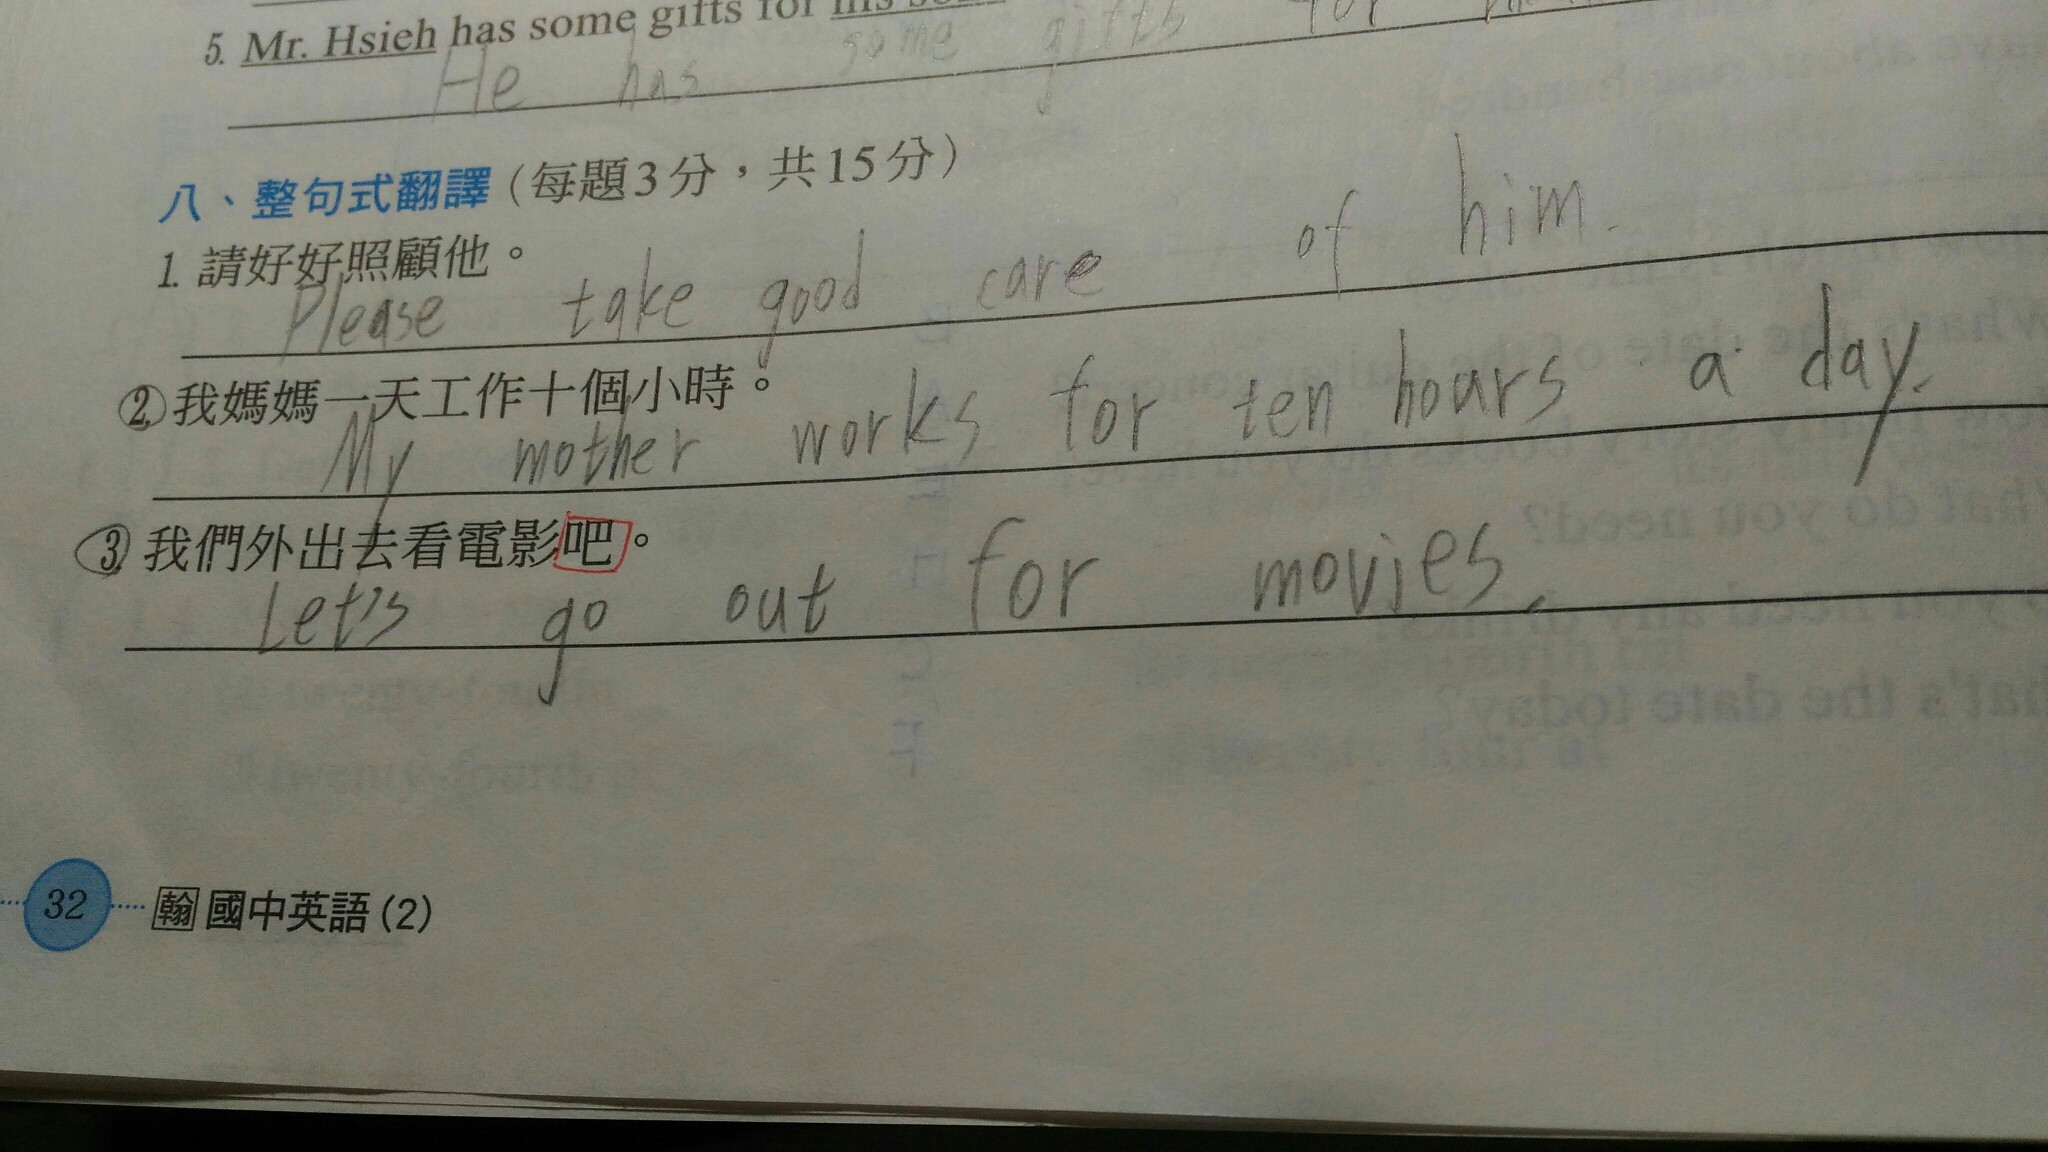 5. Mr. Hsieh has some gifts for his
He has some gifts for
八、整句式翻譯(每題3分,共15分)
1. 請好好照顧他。
Please take good care of him.
2. 我媽媽一天工作十個小時。
My mother works for ten hours a day.
3. 我們外出去看電影吧。
Let's go out for movies.
32 翰 國中英語(2)